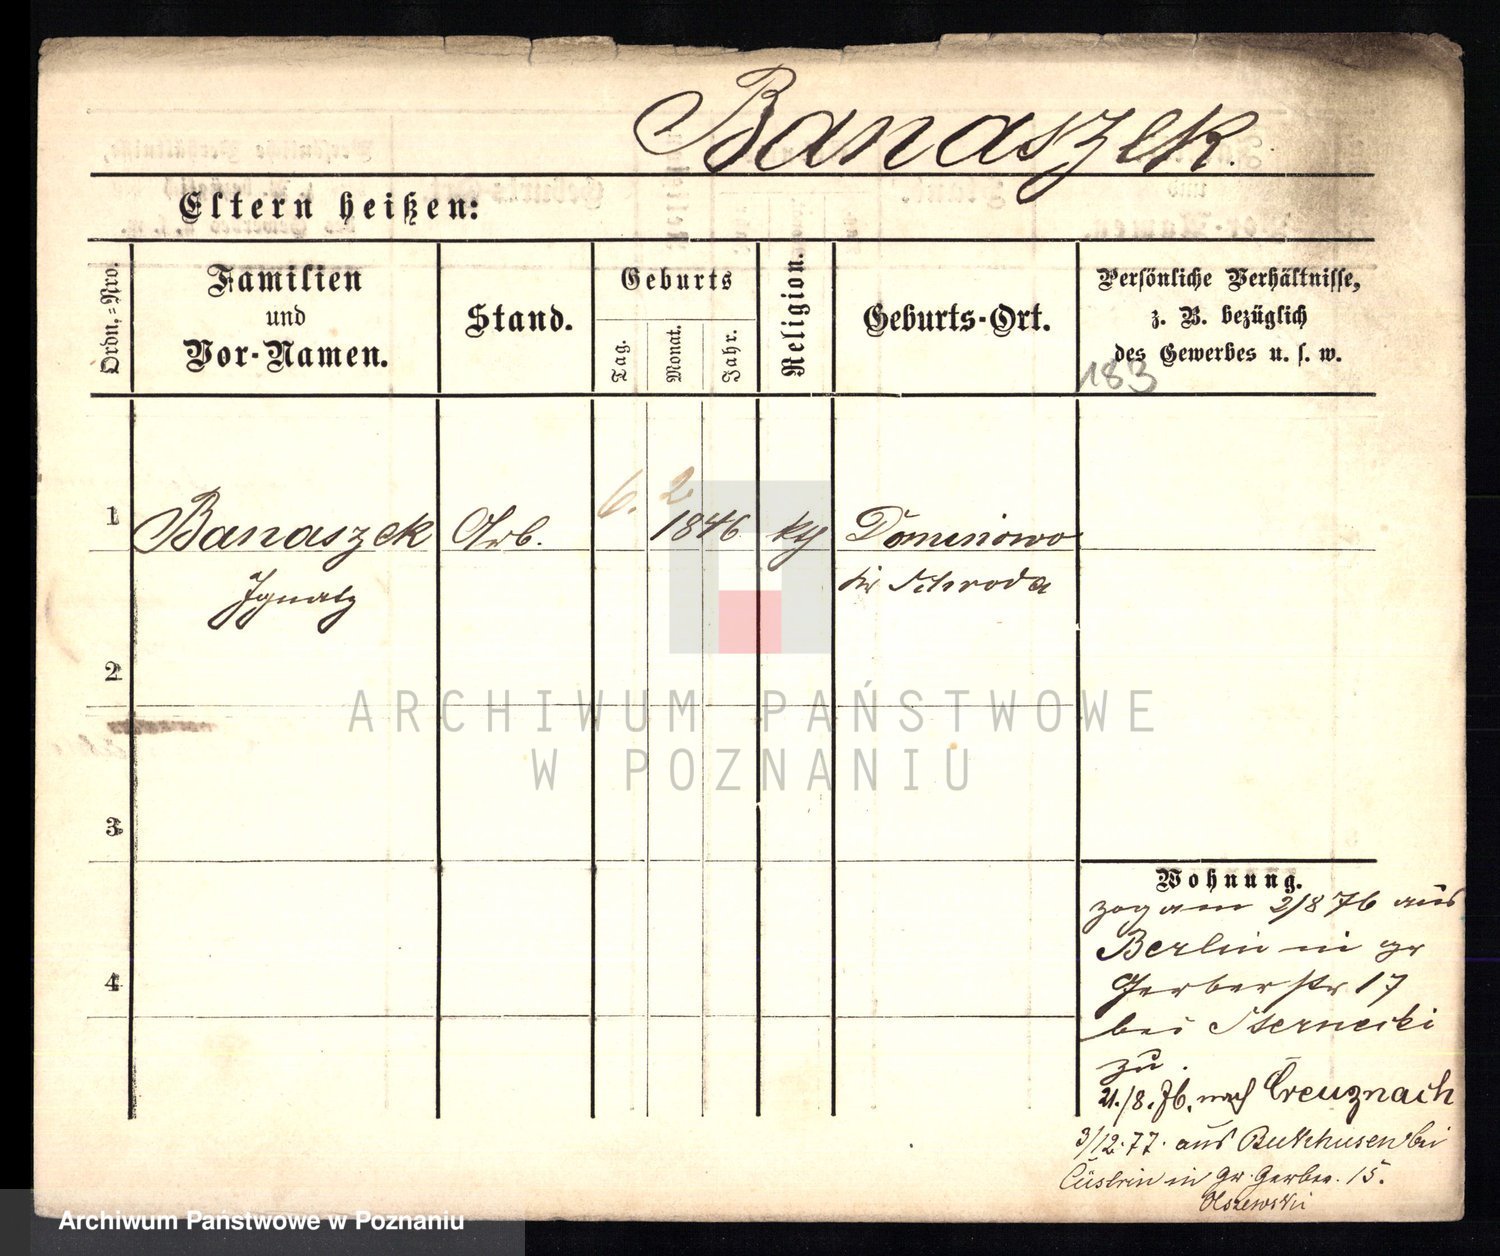 Banaszek.
Eltern heißen:
Ordn.-Nro.
Familien
und
Vor-Namen.
Stand.
Geburts
Tag.
Monat.
Jahr.
Religion.
Geburts-Ort.
Persönliche Verhältnisse,
z. B. bezüglich
des Gewerbes u. s. w.
183
1
Banaszek
Ignatz
Arb.
6. 2
1846
kth
Dominowo
Kr Schroda
2
3
4
Wohnung.
zog am 2/8 76 aus
Berlin in gr
Gerberstr 17
bei Sternecki
zu.
21./8. 76. nach Creuznach
3/12.77. aus bei
Cüstrin in Gr. Gerber. 15.
Olszewski
ARCHIWUM PAŃSTWOWE
W POZNANIU
Archiwum Państwowe w Poznaniu